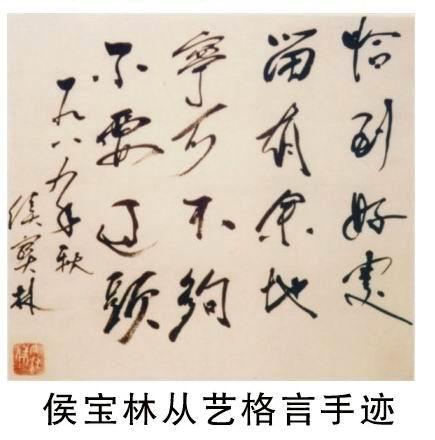 恰到好处
留有余地
寧可不夠
不要过頭
一九八九年秋
侯寶林
侯宝林从艺格言手迹